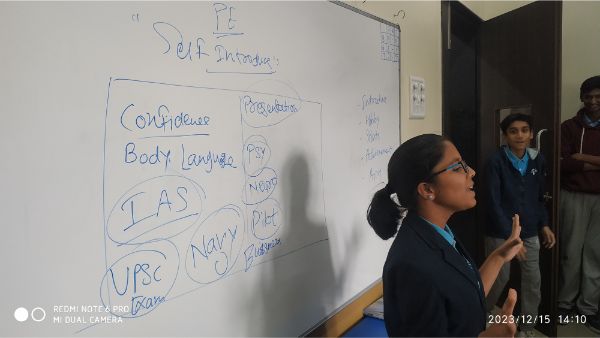 PE
Self
Introduce:
Confidence
Body Language
IAS
UPSC
Exam
Navy
Presentation
PSY
Neuro
Pilot
Business
Introduce
Hobby
REDMI NOTE 6 PRO
MI DUAL CAMERA
2023/12/15 14:10